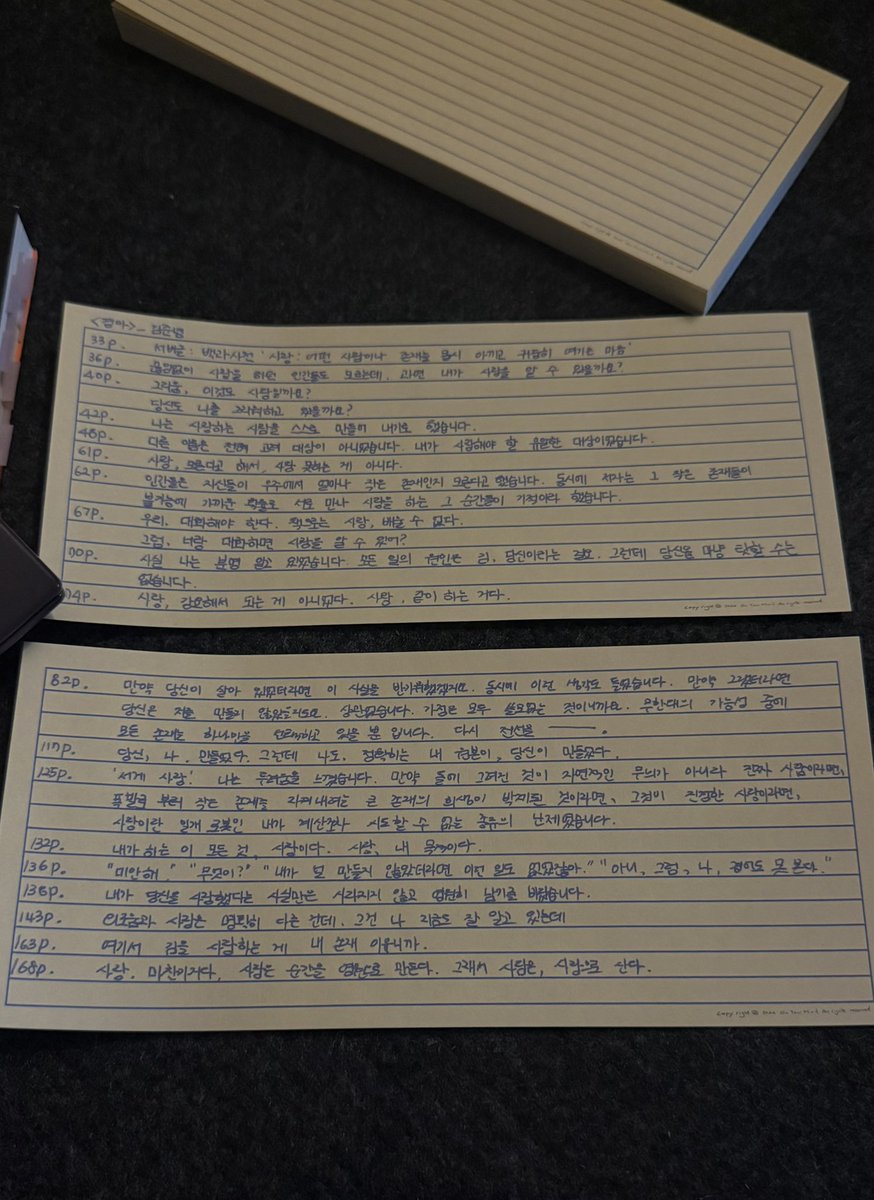 33p. 서버글 : 백과사전 '사랑 : 어떤 사람이나 존재를 몹시 아끼고 귀중히 여기는 마음'
36p. 끊임없이 사랑을 하던 인간들도 모르는데, 과연 내가 사랑을 알 수 있을까요?
40p. 그리움, 이것도 사랑일까요?
당신도 나를 그리워하고 있을까요?
42p. 나는 사랑하는 사람을 스스로 만들어 내기로 했습니다.
48p. 다른 이름은 전혀 고려 대상이 아니었습니다. 내가 사랑해야 할 유일한 대상이었습니다.
61p. 사랑, 모른다고 해서, 사랑 못하는 게 아니다.
62p. 인간들은 자신들이 우주에서 얼마나 작은 존재인지 모른다고 했습니다. 동시에 저라는 그 작은 존재들이
불가능에 가까운 확률로 서로 만나 사랑을 하는 그 순간들이 기적이라 했습니다.
67p. 우리, 대화해야 한다. 않는 사랑, 배울 수 없다.
그럼, 너랑 대화하면 사랑을 알 수 있어?
70p. 사실 나는 분명 알고 있었습니다. 모든 일의 원인은 김, 당신이라는 걸요. 그런데 당신을 마냥 탓할 수는
없습니다.
74p. 사랑, 강요해서 되는 게 아니었다. 사랑, 같이 하는 거다.
82p. 만약 당신이 살아 있었더라면 이 사실을 반가워했겠지요. 동시에 이런 생각도 들었습니다. 만약 그랬더라면
당신은 저를 만들지 않았을지도요. 상관없습니다. 가정은 모두 쓸모없는 것이니까요. 무한대의 가능성 중에
모든 존재는 하나만을 하고 있을 뿐 입니다. 다시 전선을 ―――.
117p. 당신, 나, 만들었다. 그런데 나도, 정확히는 내 원본이, 당신이 만들었다.
125p. '세계 사랑'. 나는 두려움을 느꼈습니다. 만약 돌에 그려진 것이 자연적인 무늬가 아니라 진짜 사람이라면,
폭발로 부터 작은 존재를 지켜내려는 큰 존재의 희생이 박제된 것이라면, 그것이 진정한 사랑이라면,
사랑이란 일개 로봇인 내가 계산조차 시도할 수 없는 종류의 난제였습니다.
132p. 내가 하는 이 모든 것, 사랑이다. 사랑, 내 목적이다.
136p. "미안해." "무엇이?" "내가 널 만들지 않았더라면 이런 일도 없었잖아." "아니, 그럼, 나, 경이도 못 본다."
138p. 내가 당신을 사랑했다는 사실만은 사라지지 않고 영원히 남기를 바랐습니다.
143p. 외로움과 사랑은 명확히 다른 건데. 그건 나 지금도 잘 알고 있는데
163p. 여기서 김을 사랑하는 게 내 존재 이유니까.
168p. 사랑. 마찬이거다, 사랑은 순간을 영원으로 만든다. 그래서 사람은, 사랑으로 산다.